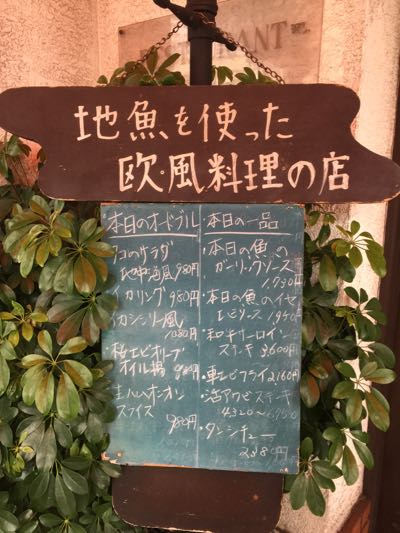 RESTAURANT
地魚を使った
欧風料理の店
・本日のオードブル
タコのサラダ
地中海風 980円
イカリング 980円
イカシシリー風
1080円
・桜エビオリーブ
オイル揚 980円
オニオン
スライス
980円
・本日の一品
・本日の魚の
ガーリックソース
1,790円
・本日の魚のイセ
エビソース 1,950
・和牛サーロイン
ステーキ 3,600円
・車エビフライ 2,160円
・活アワビステーキ
4320〜
・タンシチュー